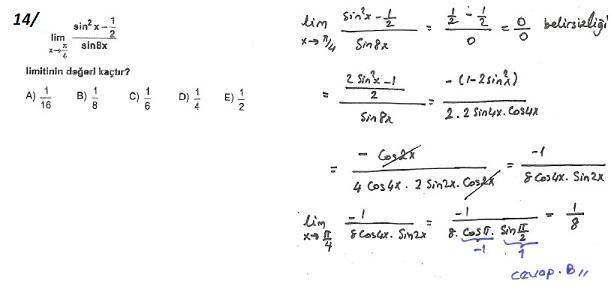 14/
lim x→π/4 (sin²x − 1/2) / sin8x
limitinin değeri kaçtır?
A) 1/16 B) 1/8 C) 1/6 D) 1/4 E) 1/2
lim x→π/4 (Sin²x − 1/2) / Sin8x = (1/2 − 1/2) / 0 = 0/0 belirsizliği
= ((2Sin²x − 1) / 2) / Sin8x = −(1−2Sin²x) / (2.2Sin4x.Cos4x)
= −Cos2x / (4Cos4x.2Sin2x.Cos2x) = −1 / (8Cos4x.Sin2x)
lim x→π/4 −1 / (8Cos4x.Sin2x) = −1 / (8.Cosπ.Sin π/2) = 1/8
−1 1
cevap. B //